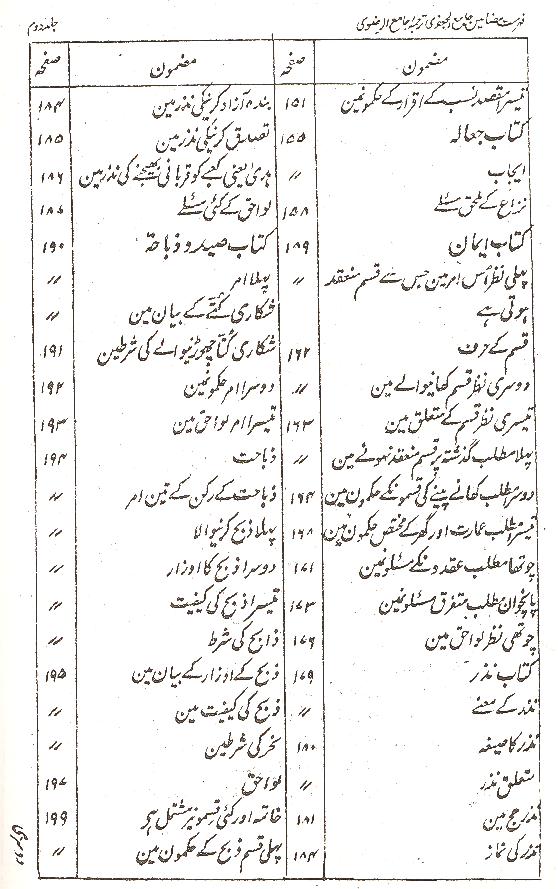 فہرست مضامین جامع الجعفری ترجمہ جامع الرضوی
جلد دوم
مضمون صفحہ
تیسرا مقصد نسب کے اقرار کے حکمونمین ۱۵۱
کتاب جعالہ ۱۵۵
ایجاب 〃
نزاع کے ملحق مسئلے ۱۵۸
کتاب ایمان ۱۸۹
پہلی نظر اُس امر مین جس سے قسم منعقد 〃
ہوتی ہے
قسم کے حرف ۱۶۲
دوسری نظر قسم کھانیوالے مین 〃
تیسری نظر قسم کے متعلق مین ۱۶۳
پہلا مطلب گذشتہ پر قسم منعقد نہونے مین 〃
دوسرا مطلب کھانے پینے کی قسمونکے حکمون مین ۱۶۴
تیسرا مطلب عمارت اور گھر کے مختص حکمون مین ۱۶۸
چوتھا مطلب عقدونکے مسئلونمین ۱۷۱
پانچوان مطلب متفرق مسئلونمین ۱۷۳
چوتھی نظر لواحق مین ۱۷۶
کتاب نذر ۱۷۹
نذر کے معنے 〃
نذر کا صیغہ ۱۸۰
متعلق نذر 〃
نذر حج مین ۱۸۱
نذر کی نماز ۱۸۴
مضمون صفحہ
بندہ آزاد کرنیکی نذر مین ۱۸۴
تصدق کرنیکی نذر مین ۱۸۵
ہدیٰ یعنی کعبے کو قربانی بھیجنے کی نذر مین ۱۸۶
لواحق کے کئی مسئلے ۱۸۷
کتاب صید و ذباحہ ۱۹۰
پہلا امر 〃
شکاری کُتّے کے بیان مین 〃
شکاری کُتّا چھوڑنیوالے کی شرطین ۱۹۱
دوسرا امر حکمونمین ۱۹۲
تیسرا امر لواحق مین ۱۹۳
ذباحت ۱۹۴
ذباحت کے رکن کے تین امر 〃
پہلا ذبح کرنیوالا 〃
دوسرا ذبح کا اوزار 〃
تیسرا ذبح کی کیفیت 〃
ذابح کی شرط 〃
ذبح کے اوزار کے بیان مین ۱۹۵
ذبح کی کیفیت مین 〃
نحر کی شرطین 〃
لواحق ۱۹۷
خاتمہ اور کئی قسمونپر مشتمل ہے ۱۹۹
پہلی قسم ذبح کے حکمون مین 〃
دوسری